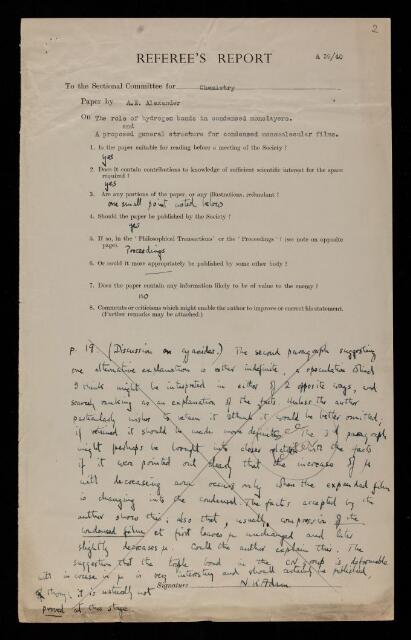 2
REFEREE'S REPORT
A 39/40
To the Sectional Committee for Chemistry
Paper by A.E. Alexander
On The role of hydrogen bonds in condensed monolayers.
and
A proposed general structure for condensed monomolecular films.
1. Is the paper suitable for reading before a meeting of the Society ?
yes
2. Does it contain contributions to knowledge of sufficient scientific interest for the space
required ?
yes
3. Are any portions of the paper, or any illustrations, redundant ?
one small point noted below
4. Should the paper be published by the Society ?
yes
5. If so, in the 'Philosophical Transactions' or the 'Proceedings' ? (see note on opposite
page).
Proceedings
6. Or could it more appropriately be published by some other body ?
7. Does the paper contain any information likely to be of value to the enemy ?
no
8. Comments or criticisms which might enable the author to improve or correct his statement.
(Further remarks may be attached.)
p. 18 (Discussion on cyanides.) The second paragraph suggesting
one alternative explanation is rather indefinite, a speculation which
I think might be interpreted in either of 2 opposite ways, and
scarcely ranking as an explanation of the facts. Unless the author
particularly wishes to retain it I think it would be better omitted;
if retained it should be made more definite. The 3rd paragraph
might perhaps be brought into closer relation with the facts
if it were pointed out clearly that the increase of μ
with decreasing area occurs only when the expanded film
is changing into the condensed. The facts accepted by the
author shows this; also that, usually, compression of the
condensed film at first leaves μ unchanged and later
slightly decreases μ. Could the author explain this. The
suggestion that the triple bond in the CN group is deformable
with increase in μ is very interesting and should certainly be published,
though it is actually not
proved at this stage.
Signature N.K. Adam